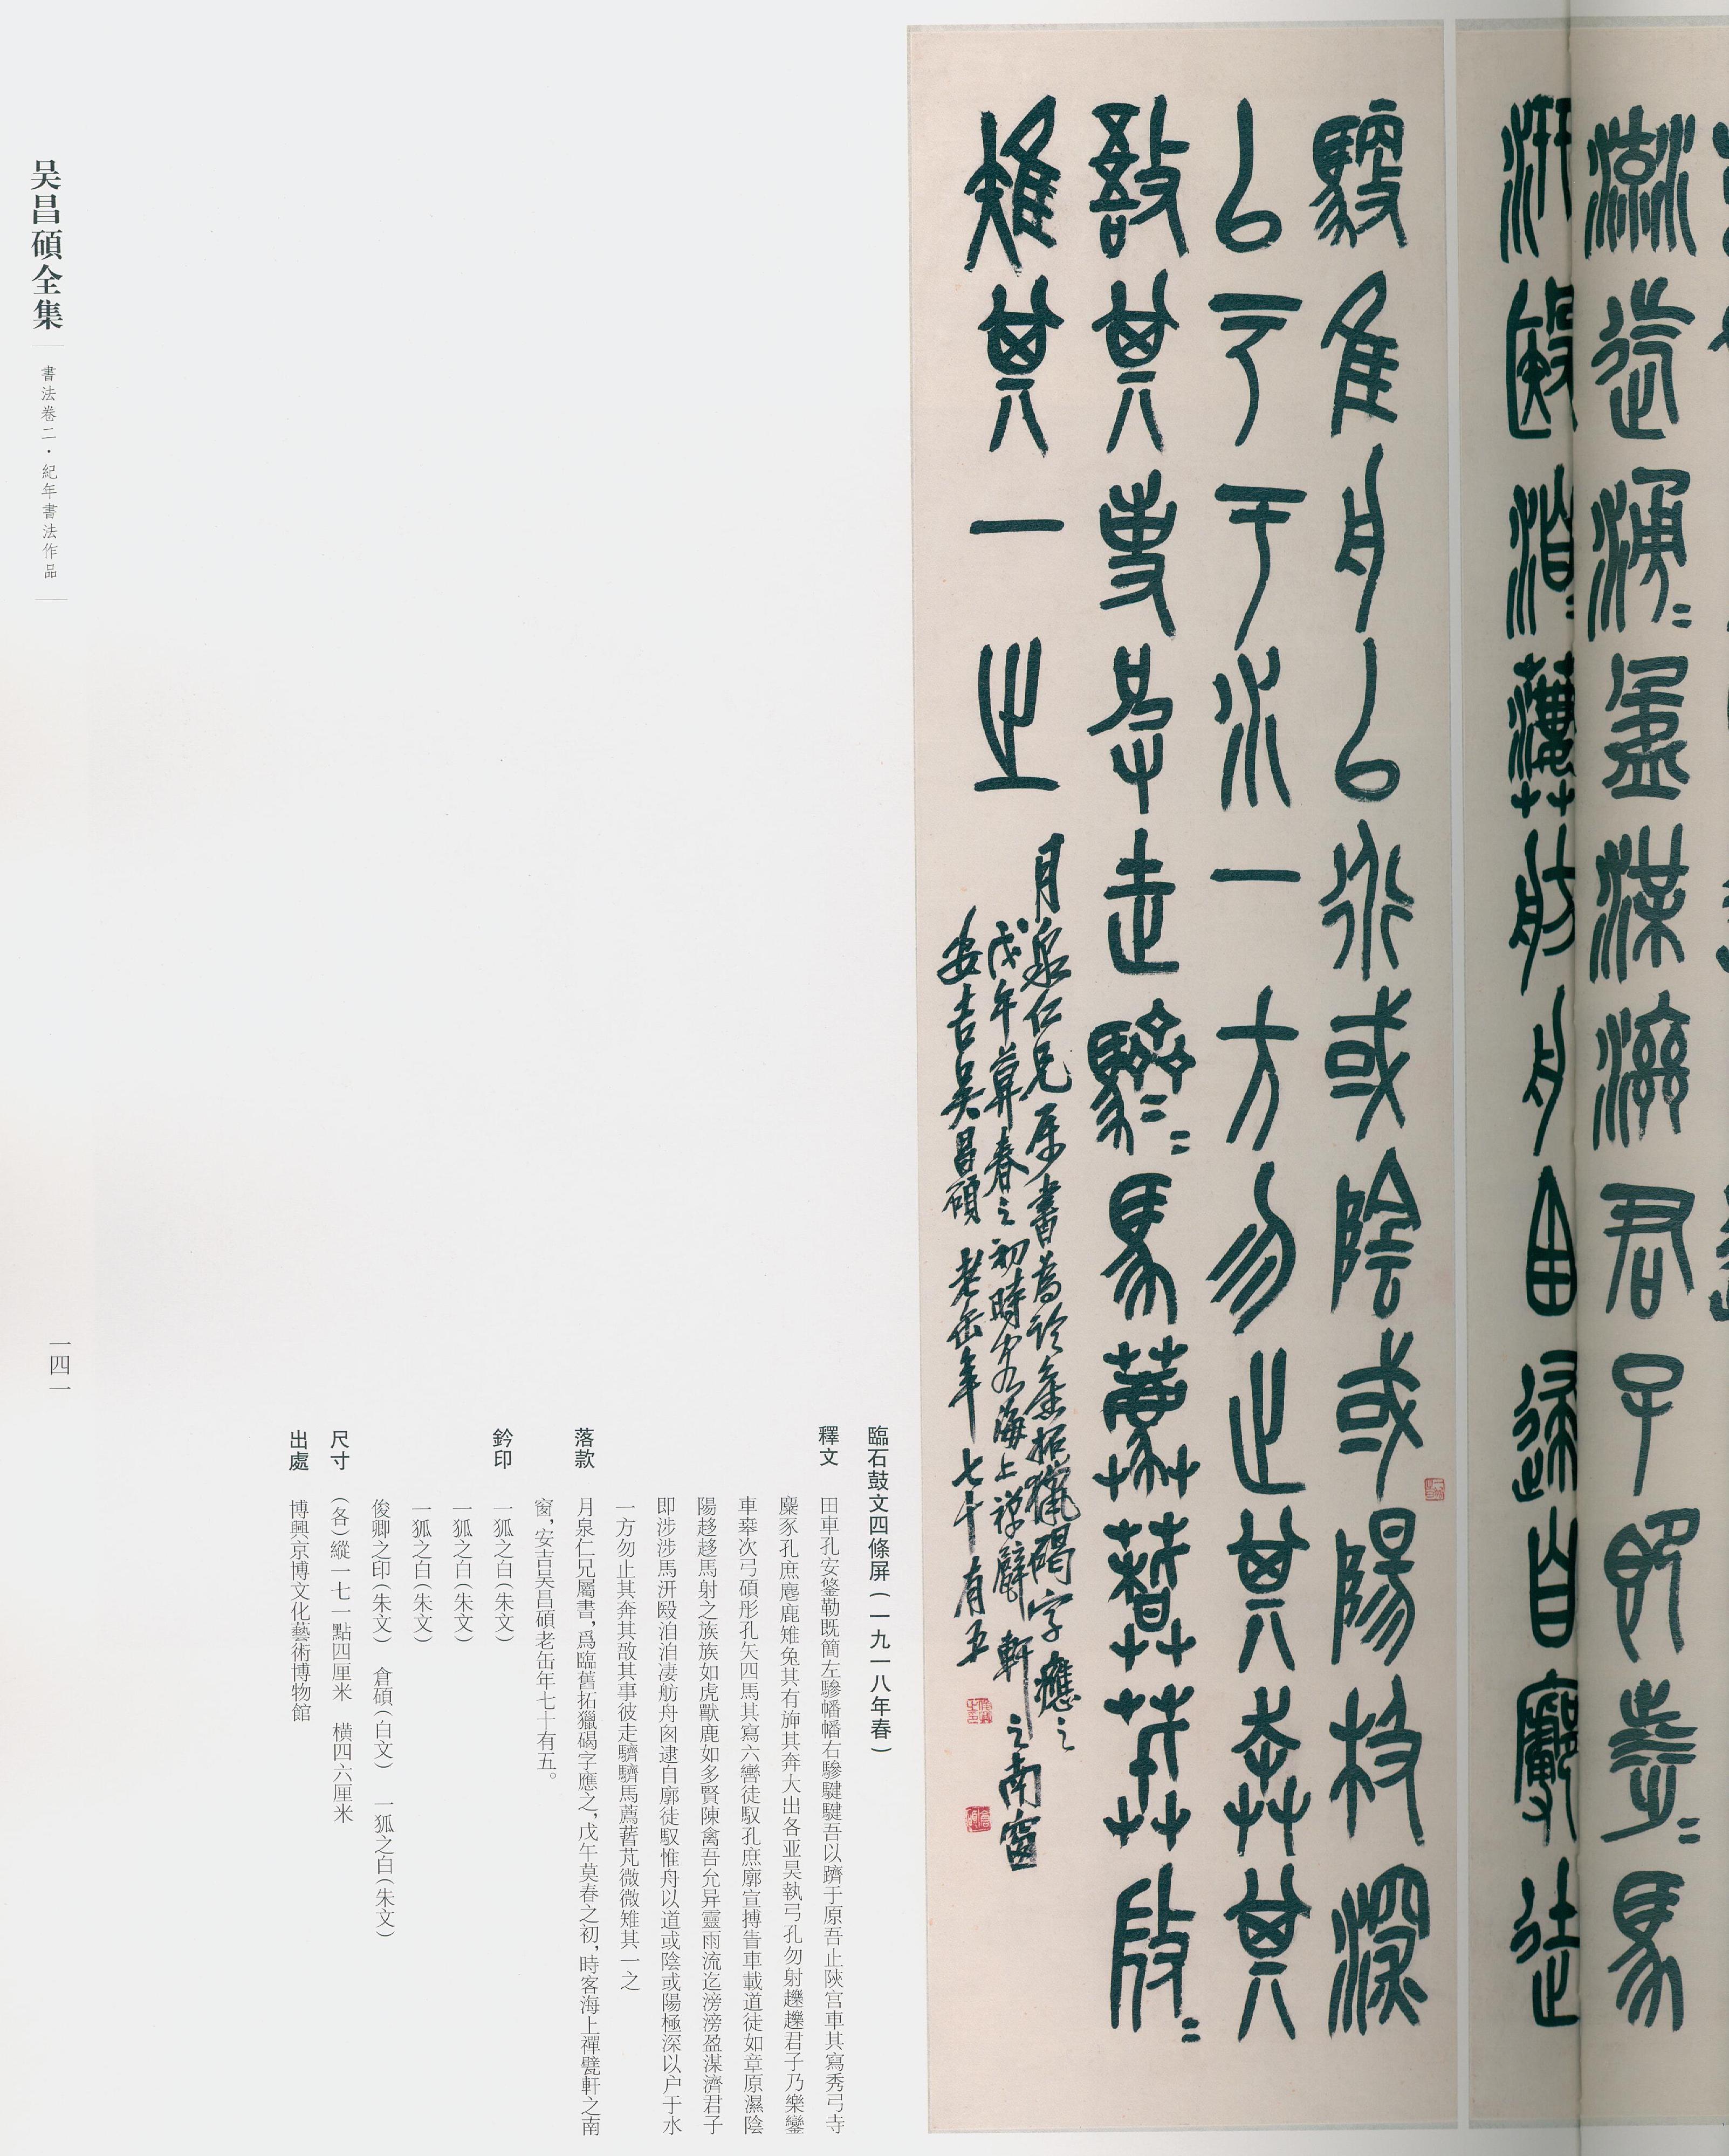 流迄滂〻盈渫濟君子即涉〻馬
汧殹洎〻淒〻舫舟囪逮自廓徒
馭隹舟以行或陰或陽极深
以户于水一方勿止其奔其
敔其事走驈〻馬薦䓘芃〻
雉其一之
月泉仁兄属書為臨舊拓獵碣字應之
戊午莫春之初時客海上禪甓軒之南窗
安吉吴昌碩老缶年七十有五
臨石鼓文四條屏（一九一八年春）
釋文 田車孔安鋚勒既簡左驂幡幡右驂騝騝吾以躋于原吾止陝宫車其寫秀弓寺
麋豕孔庶麀鹿雉兔其有䌟其奔大出各亚昊執弓孔勿射趮趮君子乃樂鑾
車𠦪次弓碩彤孔矢四馬其寫六轡徒馭孔庶廓宣搏眚車載道徒如章原濕陰
陽趍趍馬射之族族如虎獸鹿如多賢陳禽吾允异靈雨流迄滂滂盈渫濟君子
即涉涉馬汧殹洎洎淒舫舟囪逮自廓徒馭惟舟以道或陰或陽極深以户于水
一方勿止其奔其敔其事彼走驈驈馬薦䓘芃微微雉其一之
落款 月泉仁兄屬書，爲臨舊拓獵碣字應之，戊午莫春之初，時客海上禪甓軒之南
窗，安吉吴昌碩老缶年七十有五。
鈐印 一狐之白（朱文）
一狐之白（朱文）
一狐之白（朱文）
俊卿之印（朱文） 倉碩（白文） 一狐之白（朱文）
尺寸 （各）縱一七一點四厘米 横四六厘米
出處 博興京博文化藝術博物館
吴昌碩全集
書法卷二·紀年書法作品
一四一